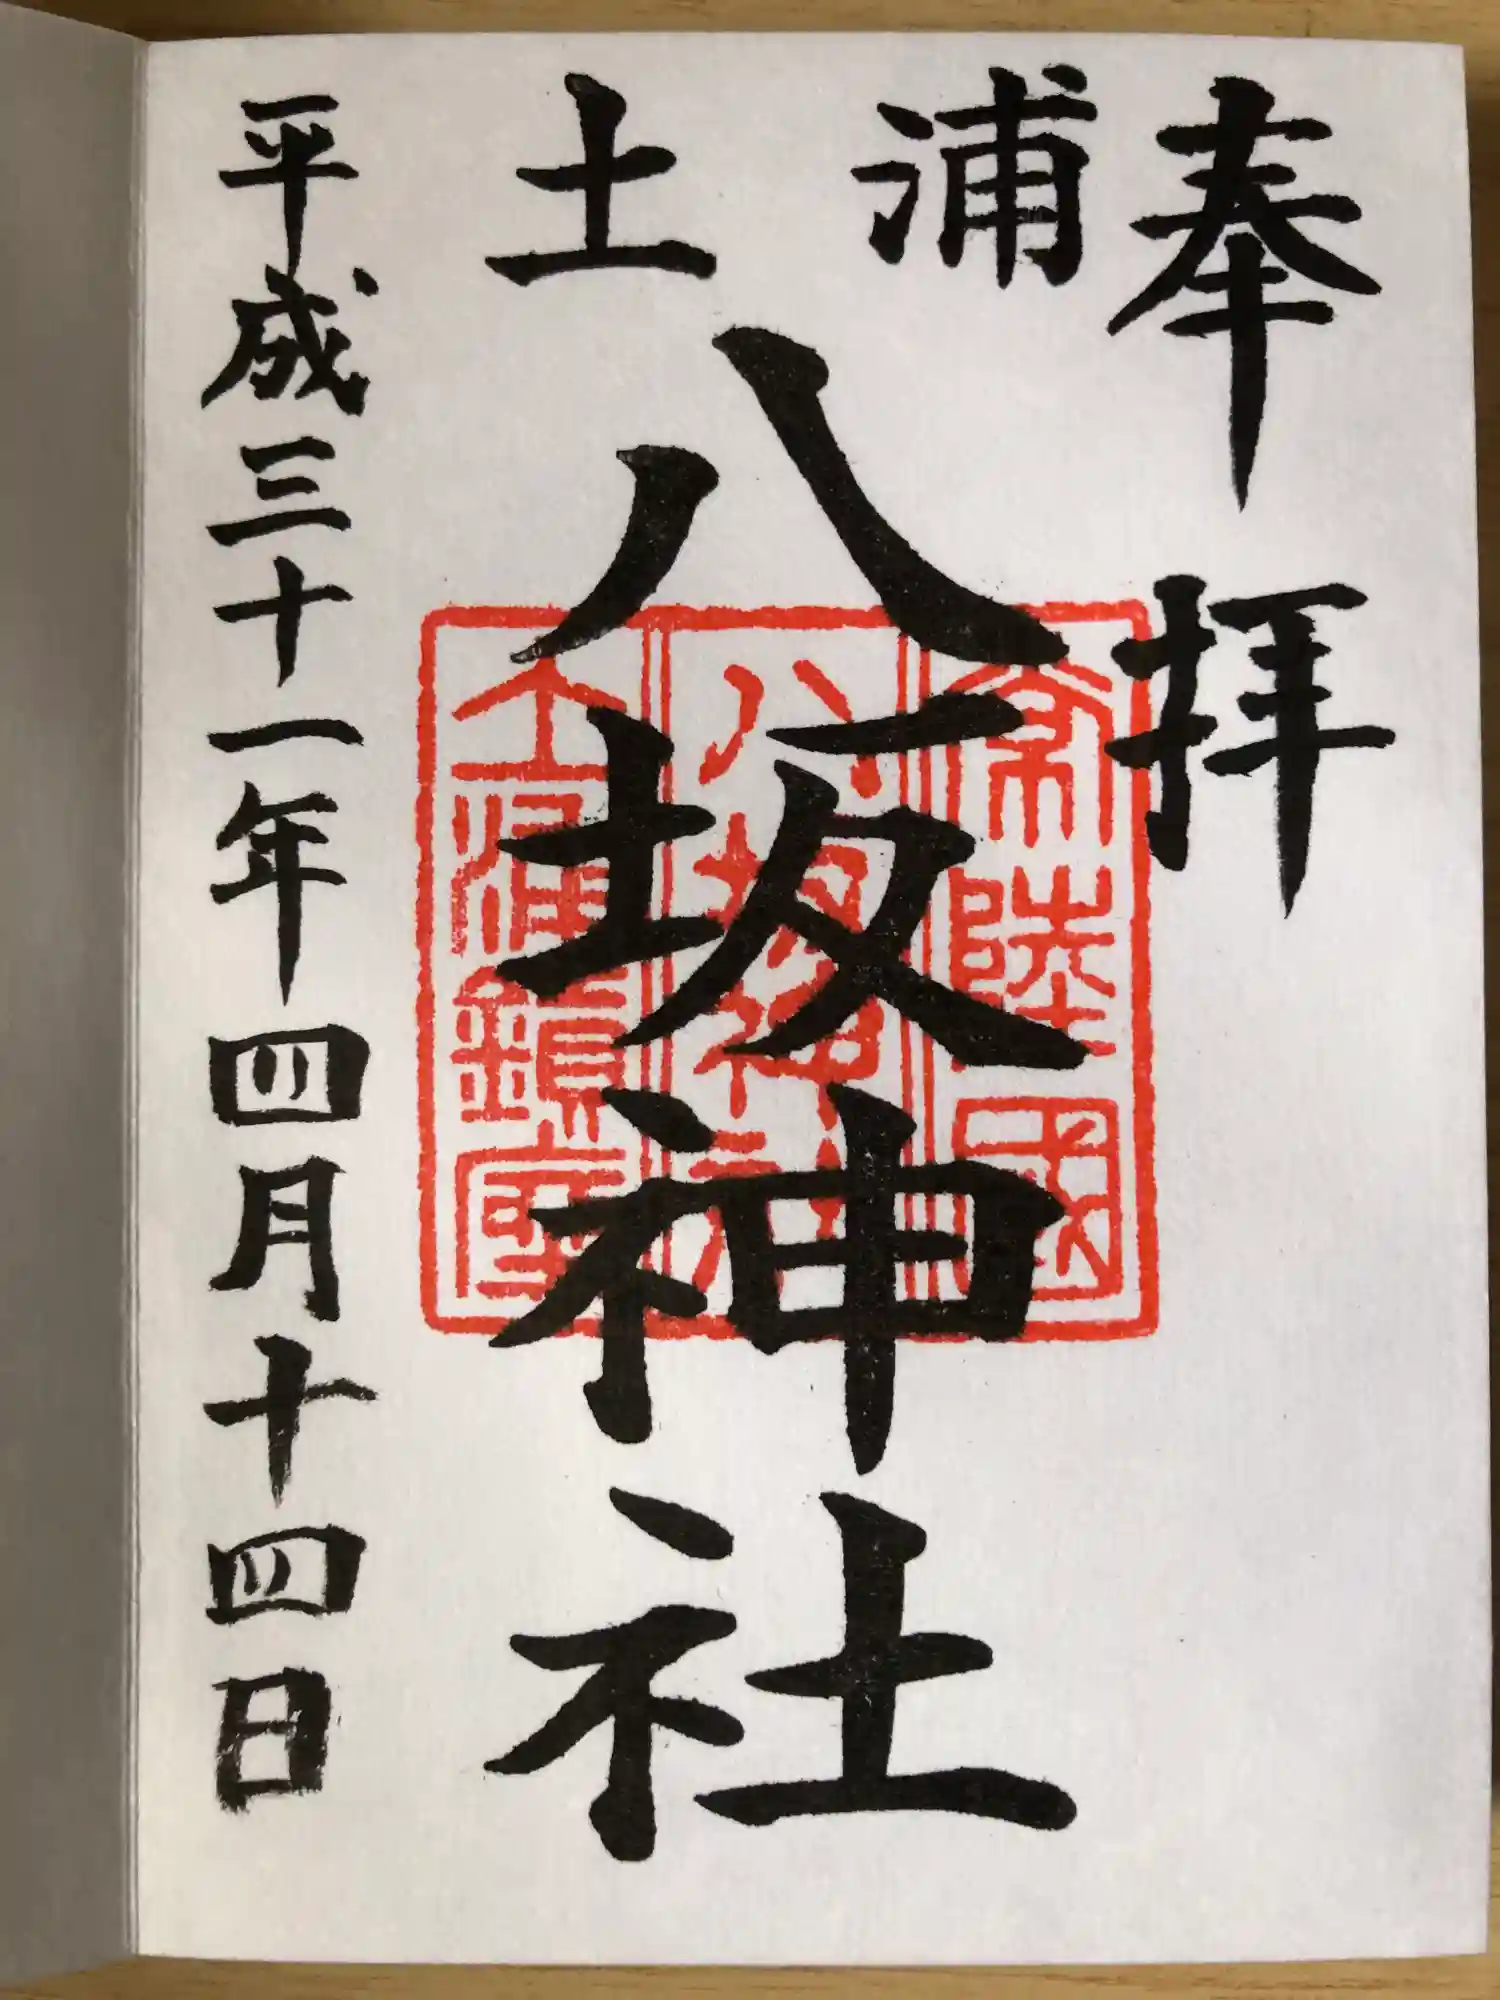 奉拝
土浦
八坂神社
平成三十一年四月十四日
常陸國
八坂神社
土浦鎮座